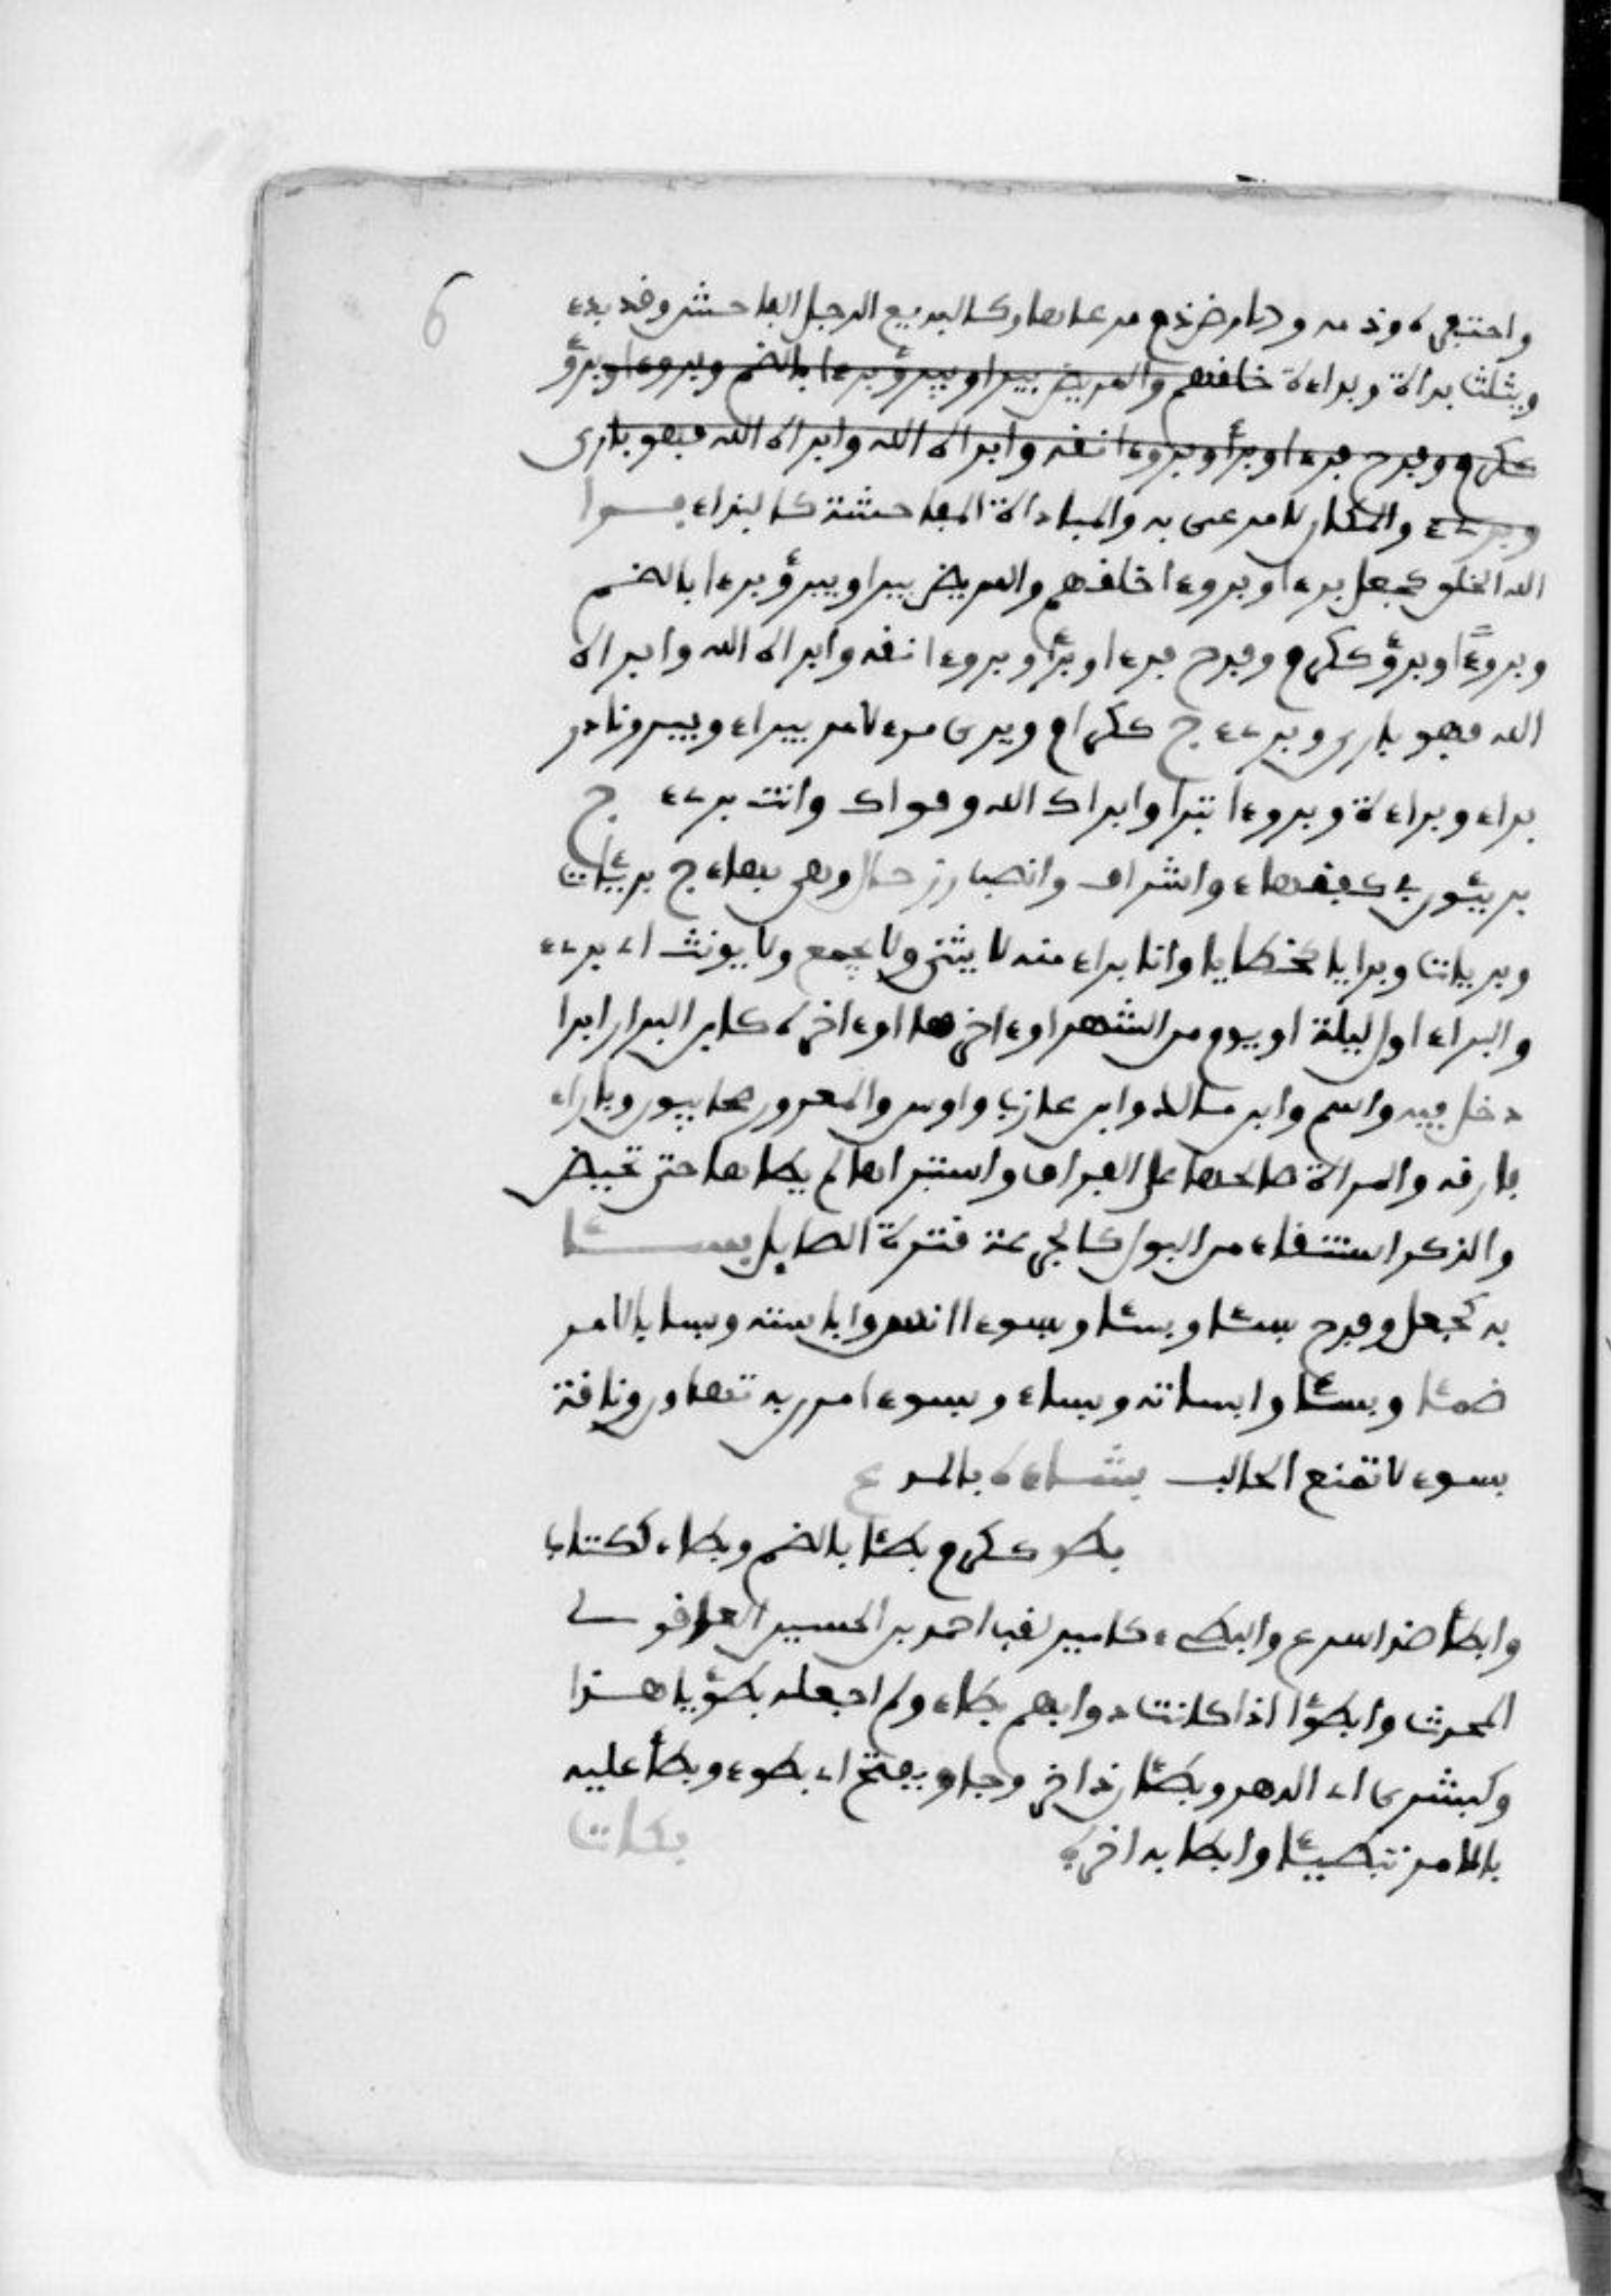 6
واحتقره وذمه والارض ذم مرعاها وكالبديع الرجل الفاحش وقد بذء
ويثلث بذاة وبذاءة خلقهم والمريض يبرا ويبرؤ برءا بالضم وبروءا وبرؤ
ككرم وفرح برءا وبرأ وبروءا نقه وابراه الله وابراه الله فهو بارئ
وبرىء والمكان لا مرعى به والمباذاة المفاحشة كالبذاء برا
الله الخلق كجعل برءا وبروءا خلقهم والمريض يبرا ويبرؤ برءا بالضم
وبروءا وبرؤ ككرم وفرح برءا وبرأ وبروءا نقه وابراه الله وابراه
الله فهو بارئ وبرىء ج ككرام وبرئ من الامر يبراء ويبرو نادر
براء وبراءة وبروءا تبرا وابراك الله وبراك وانت برىء ج
بريئون وكفقهاء واشراف وانصبا ورخال وهي بهاء ج بريئات
وبريات وبرايا كخطايا وانا براء منه لا يثنى ولا يجمع ولا يونث اي برىء
والبراء اول ليلة او يوم من الشهر او ءاخرها او ءاخره كابن البراء وابرا
دخل فيه واسم وابن مالك وابن عازب واوس والمعرور صحابيون وباراه
فارقه والمراة صالحها على الفراق واستبراها لم يطاها حتى تحيض
والذكر استنقاه من البول وكالجرعة قترة الصايد بسئا
به كجعل وفرح بسئا وبسئا وبسوءا انس وابسسته وبسا بالامر
بسئا وبسئا وابساته وبساء وبسوءا مرن به تهاون وناقة
بسوء لا تمنع الحالب بشاءة بالمد ع
بطؤ ككرم بطئا بالضم وبطاء ككتاب
وابطأ ضد اسرع والبطيء كامير لقب احمد بن الحسين العاقولي
المحدث وابطؤا اذا كانت دوابهم بطاء ولم افعله بطؤ يا هذا
وكبشرى اي الدهر وبطئان ذا خروجا ويفتح اي بطوء وبطأ عليه
بالامر تبطيئا وابطا به اخره بكات